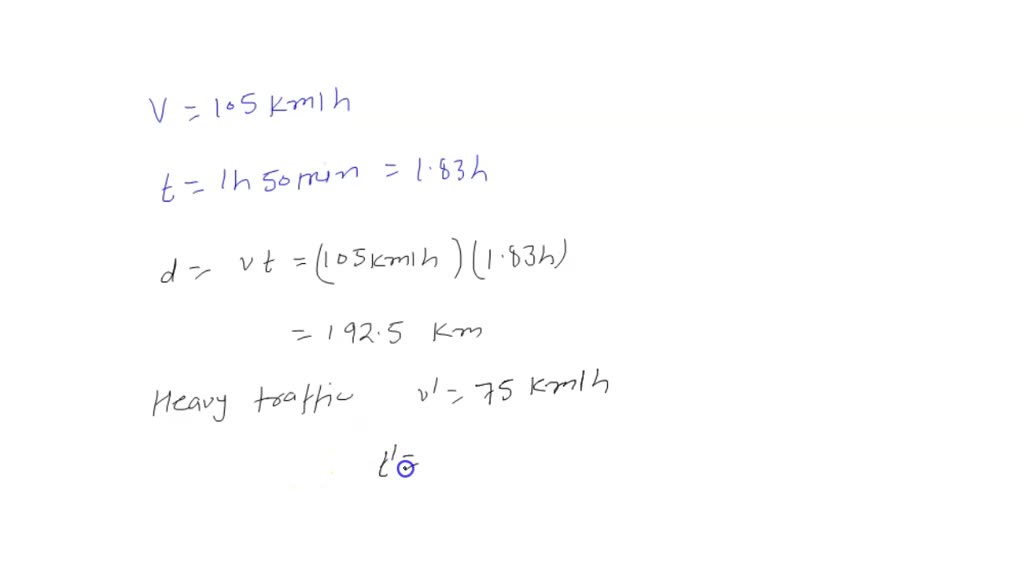 V = 105 Km/h
t = 1h 50 min = 1.83h
d = vt = (105 Km/h)(1.83h)
= 192.5 Km
Heavy traffic v' = 75 Km/h
t' =